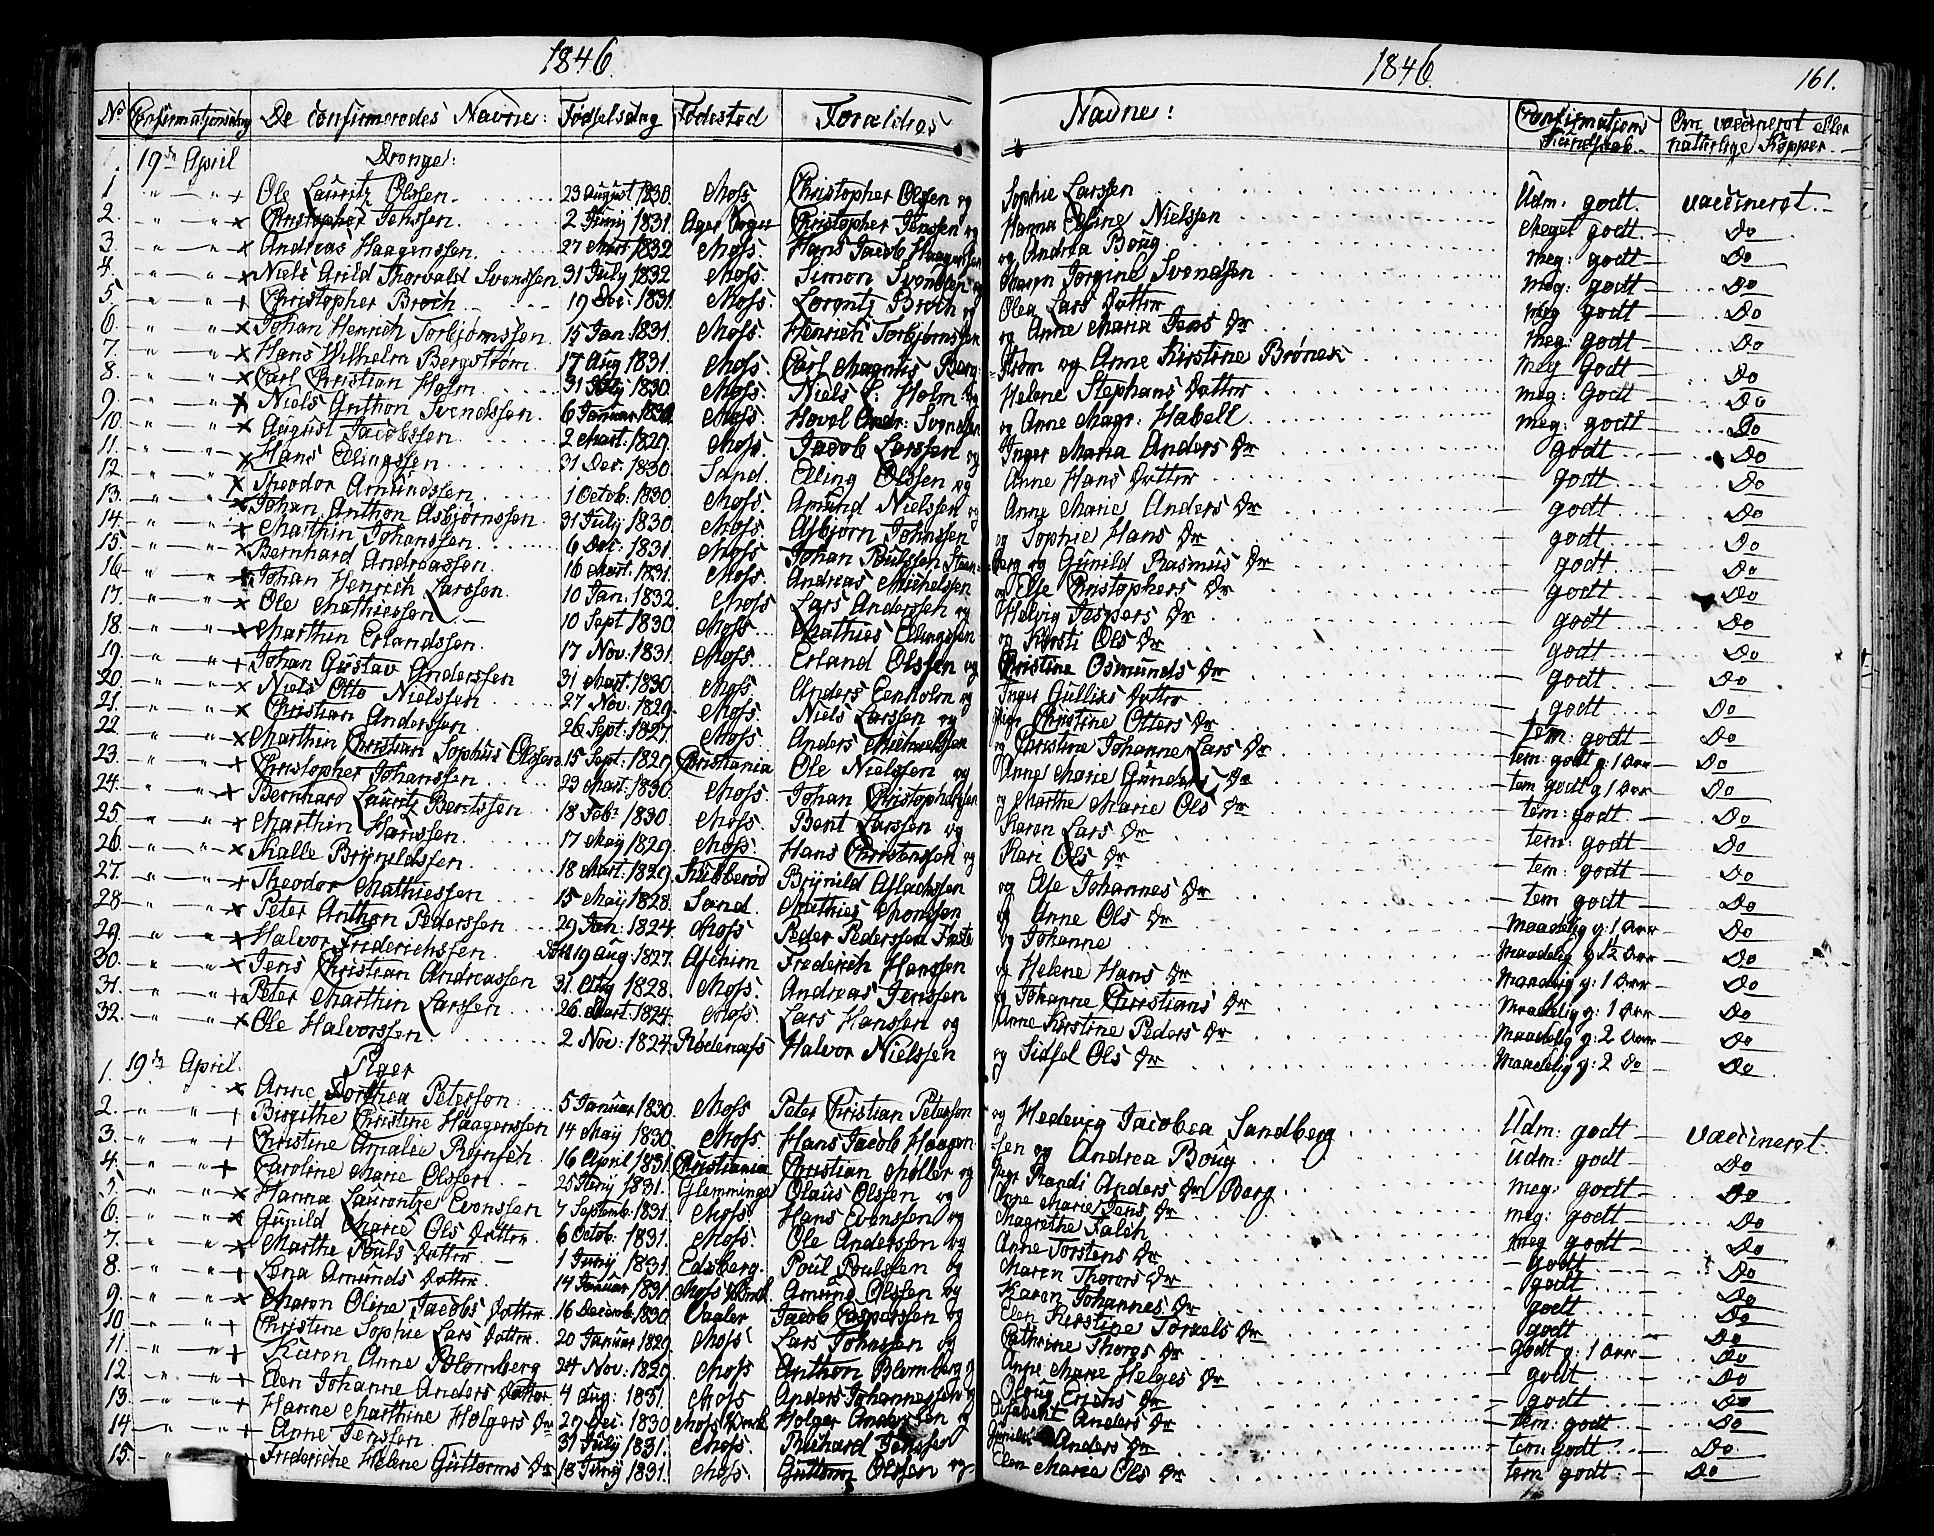 1846. 1846. 161.
No Confirmationsdag De confirmeredes Navne: Fødselsdag Fødested Forældres Navne: Confirmations Kundskab. Om vaccineret eller naturlige Kopper.
19de April Drenge:
1 " " Ole Lauritz Olssen. 23 August 1830. Moss Christopher Olssen og Sophie Larssen Udm: godt vaccineret.
2. " " Christopher Jenssen. 2 Junij 1831. Christopher Jenssen og Hanna Eline Nielssen Meget godt Do
3. " " Andreas Haagenssen. 27 Mart 1832 Moss. Hans Jacob Haagenssen og Andrea Boug meg: godt Do
4. " " Niels Arild Thorvald Svendssen 31 July 1832 Moss. Simon Svendsen og Maren Jorgine Svendssen meg: godt Do
5. " " Christopher Broch 19 Dec: 1831. Moss. Lorentz Broch og Olea Lars Datter meg godt Do
6. " " Johan Henrich Torbjørnssen. 15 Jan. 1831. Moss. Henrich Torbjørnssen og Anne Maria Jens Dr meg: godt Do
7. " " Hans Wilhelm Bergstrøm. 17 Aug 1831. Moss. Carl Magnus Berg= strøm og Anne Kirstine meg Godt Do
8. " " Carl Christian Holm. 31 July 1830. Moss. Niels C: Holm og Helene Stephans Datter meg: Godt Do
9. " " Niels Anthon Svendssen. 6 Januar Moss. Hovel Ander: Svendsen og Anne Magr: Habell meg: godt Do
10. " " August Jacobssen. 2 Mart: 1829. Moss. Jacob Larssen og Inger Maria Anders Dr godt Do
11. " " Hans Ellingssen 31 Dec. 1830. Sand. Elling Olssen og Anne Hans Datter godt Do
12. " " Theodor Amundssen. 1 Octob: 1830. Moss. Amund Nielssen og Anne Marie Anders Dr godt Do
13. " " Johan Anthon Asbjørnssen. 31 July 1830. Moss. Asbjørn Johnssen og Sophie Hans Dr godt Do
14. " " Marthin Johanssen. 6 Dec: 1831. Moss. Johan og Gunild Rasmus Dr godt Do
15. " " Bernhard Andreassen. 16 Mart. 1831. Moss. Andreas Michelsen og Else Christophers Dr godt Do
16. " " Johan Henrich Larssen. 10 Jan: 1832. Moss Lars Anderssen og Helvig Jespers Dr godt Do
17. " " Ole Mathiessen. 10 Sept 1830. Moss Mathies Ellingssen og Kirsti Ols Dr godt Do
18. " " Marthin Erlandssen. 17 Nov: 1831. Moss. Erland Olssen og Christine Osmunds Dr godt Do
19. " " Johan Gustav Anderssen 31 Mart. 1830. Moss. Anders Eenholm og Inger Gulliks Datter godt Do
20. " " Niels Otto Nielssen 27 Nov. 1829. Moss. Niels Larssen og Christine Otters Dr godt Do
21. " " Christian Anderssen. 26 Sept. 1827. Moss. Anders Michaelssen og Christine Johanne Lars Dr tem: godt Do
22. " " Marthin Christian Sophus Olssen 15 Sept: 1829. Christiania Ole Nielssen og Anne Marie Gunders Dr tem: godt g: 1 Aar Do
23. " " Christopher Johanssen 23 Mart: 1830. Moss. Johan Christophersen og Marthe Marie Ols Dr tem godt g 1 Aar Do
24. " " Bernhard Lauritz Bentssen 18 Feb: 1830. Moss. Bent Larssen og Karen Lars Dr tem: godt Do
25. " " Marthin Hanssen. 17 Maij 1829. Moss. Hans Christenssen og Kari Ols Dr tem: godt Do
26. " " Kalle Brynildssen. 18 Mart: 1829. Kubberød Brynild Aslachssen og Ase Johannes Dr tem: godt Do
27. " " Theodor Mathiessen 15 Maij 1828. Sand. Mathies Monssen og Anne Ols Dr tem godt Do
28 " " Peter Anthon Pederssen 29 Jan: 1824. Moss Peder Pederssen og Johanne Maadelig g: 1 Aar Do
29. " " Halvor Friderichssen. 19 Aug: 1827. Aschim Frederich Hanssen og Helene Hans Dr Maadelig g: Aar Do
30. " " Jens Christian Andreassen 1828. Moss. Andreas Jenssen og Johanne Christians Dr Maadelig g: 1 Aar Do
31. " " Peter Marthin Larssen 26 Mart: 1824. Moss. Lars Hanssen og Anne Kirstine Peders Dr Maadelig g: 1 Aar Do
32. " " Ole Halvorssen. 2 Nov: 1824. Rødenæss Halvor Nielssen og Sidsel Ols Dr Maadelig g: 2 Aar Do
Maadelig g: 2 Do Do
19de April. Piger
1. Anne Dorthea Peterssen: 5 Januar 1830. Moss Peter Christian Peterssen og Hedevig Jacobea Sandberg Udm: godt vaccineret.
2. " " Birgithe Christine Haagenssen 14 Maij 1830. Moss. Hans Jacob Haagen= sen og Andrea Boug Udm: godt Do
3. " " Christine Amalie 16 April 1831. Christiania Christian Møller og Randi Anders Dr Berg. meg: godt Do
4. " " Caroline Marie Olssen. 25 Junij 1831. Glemminge Olaus Olssen og Anne Marie Jens Dr meg: godt Do
5. " " Hanna Laurentze Evenssen 7 Septemb: 1831. Moss Hans Evenssen og Magrethe Falch meg godt Do
6. " " Gunild Marie Ols Datter. 6 Octob. 1831. Moss. Ole Anderssen og Anne Torstens Dr godt Do
7. " " Marthe Pouls Datter 1 Junij 1831. Edsberg. Poul Poulssen og Maren Thorers Dr godt Do
8. " " Lena Amunds Datter. 14 Januar 1831. Moss Amund Olssen og Karen Johannes Dr godt Do
9. " " Maren Oline Jacobs Datter 16 Decemb: 1830. Vaaler Jacob Casperssen og Elen Kirstine Torkels Dr godt Do
10. " " Christine Sophie Lars Datter. 20 Januar 1829. Moss Lars Johnssen og Cathrine Thores Dr godt g: 1 Aar Do
11. " " Karen Anne Blomberg 24 Nov: 1829. Moss Anthon Blomberg og Anne Marie Helges Dr godt Do
12. " " Elen Johanne Anders Datter 4 Aug: 1831. Moss Anders Johannessen og Oloug Erichs Dr godt Do
13. " " Hanne Marthine Holgers Dr 29 Dec: 1830 Moss Holger Anderssen og Anders Dr tem: godt Do
14. " " Anne Jenssen. 31 July 1831. Moss. Richard Jenssen Anders Dr tem: godt Do
15. " " Frideriche Helene Guttorms Dr 18 Junij 1831. Moss. Guttorm Olssen og Elen Marie Ols Dr tem godt Do